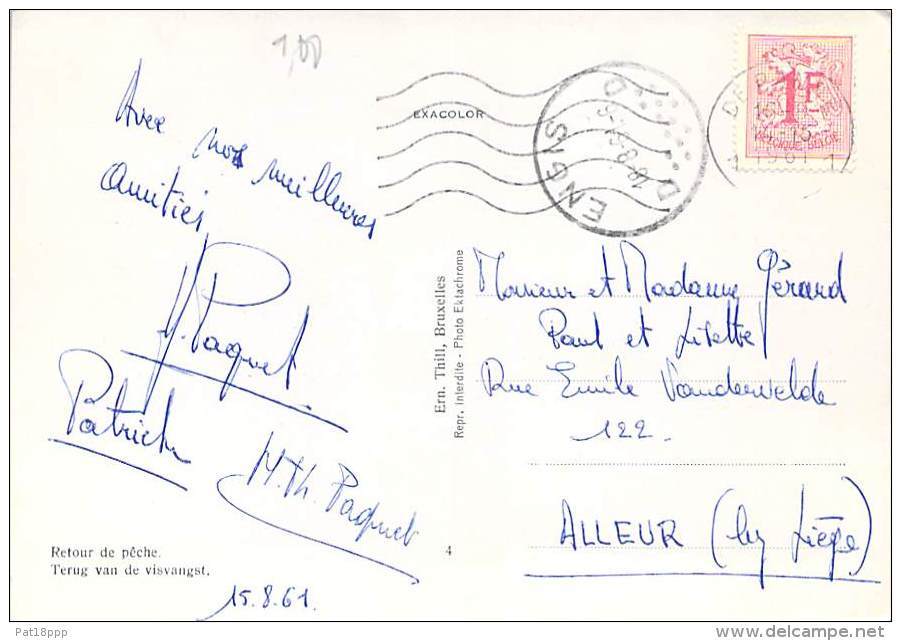 1,00
Avec nos meilleures
amitiés
J. Paquet
Patrick
M. Th. Paquet
Retour de pêche.
Terug van de visvangst.
15.8.61.
4
EXACOLOR
Ern. Thill, Bruxelles
Repr. Interdite - Photo Ektachrome
ENGIS
D
D
1F
BELGIQUE-BELGIE
1961
Monsieur et Madame Gérard
Paul et Lisette
Rue Emile Vandervelde
122.
ALLEUR (lez Liège)
Pat18ppp
www.delcampe.net